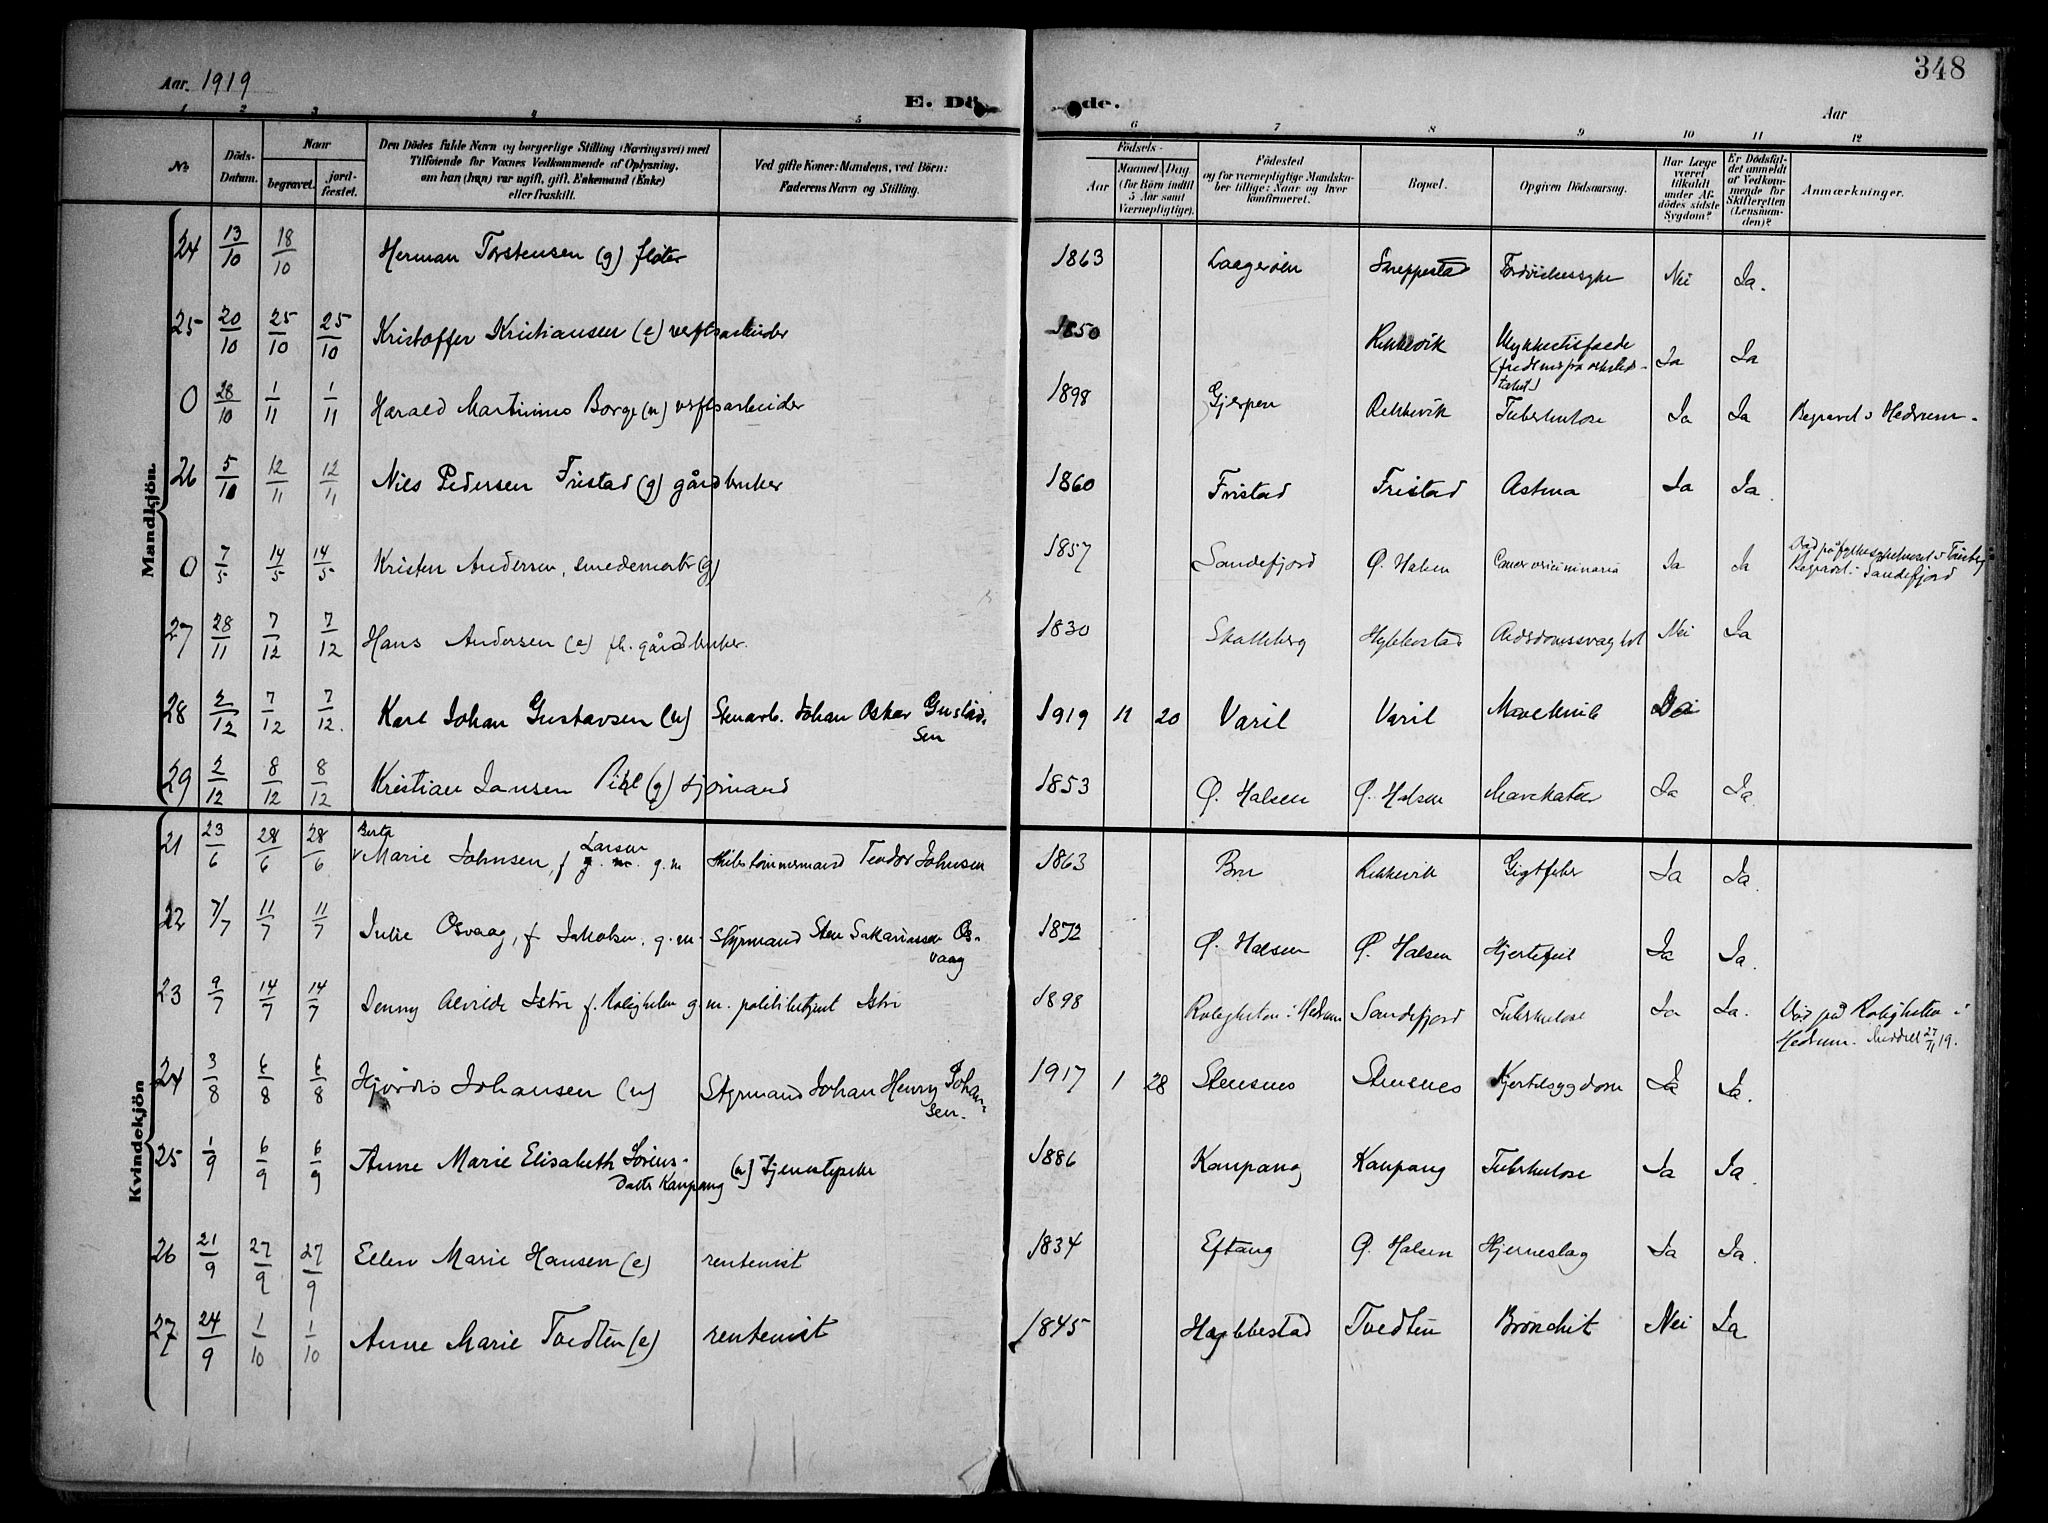 348
Aar. 1919
E. Dö de.
Aar
1 2 3 4 5 6 7 8 9 10 11 12
No
Döds-Datum.
Naar
begravet.
jord-fæstet.
Den Dödes fulde Navn og borgerlige Stilling (Næringsvei) med
Tilföiende for Voxnes Vedkommende af Oplysning,
om han (hun) var ugift, gift, Enkemand (Enke)
eller fraskilt.
Ved gifte Koner: Mandens, ved Börn:
Faderens Navn og Stilling.
Födsels-
Aar
Maaned. Dag
(for Börn indtil 5 Aar samt Værnepligtige).
Födested
og for værnepligtige Mandska-
ber tillige: Naar og hvor
konfirmeret.
Bopæl.
Opgiven Dödsaarsag.
Har Læge været tilkaldt under Af-dödes sidste Sygdom?
Er Dödsfal-det anmeldt af Vedkom-mende for Skifteretten (Lensman-den)?
Anmærkninger.
Mandkjön
24 13/10 18/10 Herman Torstensen (g) fløter 1863 Laagerøen Snippestad Nei Ja.
25 20/10 25/10 25/10 Kristoffer Kristiansen (e) verftsarbeider 1850 Rekkevik Ulykkestilfælde Ja Ja
0 28/10 1/11 1/11 Harald Martinius Borge (u) verftsarbeider 1898 Gjerpen Rekkevik Tuberkulose Ja Ja Begravet i Hedrum.
26 5/10 12/11 12/11 Niels Pedersen Fristad (g) gårdbruker 1860 Fristad Fristad Astma Ja Ja.
0 7/5 14/5 14/5 Kristen Andersen, smedemester (g) 1857 Sandefjord Ø. Halsen Cancer Ja Ja Død på fylkessykehuset i Tønsberg
Begravet i Sandefjord
27 28/11 7/12 7/12 Hans Andersen (e) fh. gårdbruker. 1830 Skalleberg Hybbestad Alderdomssvaghet Nei Ja
28 2/12 7/12 7/12. Karl Johan Gustavsen (u) Stenarb. Johan Oskar Gustav-
sen 1919 11 20 Varil Varil Nei
29 2/12 8/12 8/12 Kristian Jansen Pihl (g) sjømand 1853 Ø. Halsen Ø. Halsen Mavekatar Ja Ja
Kvindekjön
21 23/6 28/6 28/6 Berta
Marie Johnsen, f Larsen g. m Skibstømmermand Teodor Johnsen 1863 Bru Rekkevik Gigtfeber Ja Ja.
22 7/7 11/7 11/7 Julie Osvaag, f. Jakobsen. g. m. Styrmand Sten Sakariassen Os-
vaag 1872 Ø. Halsen Ø. Halsen Hjertefeil Ja Ja.
23 9/7 14/7 14/7 Jenny Alvilde Istre f. Roligheten g m. politibetjent Istre 1898 Roligheten i Hedrum Sandefjord Tuberkulose Ja Ja. Død på Roligheten i
Hedrum. Anmeldt 27/11 19.
24 3/8 6/8 6/8 Hjørdis Johansen (u) Styrmand Johan Henry Johan-
sen. 1917 1 28 Stensnes Stensnes Hjertesygdom Ja Ja.
25 1/9 6/9 6/9 Anne Marie Elisabeth Sørens-
datter Kaupang (u) Tjenestepike 1886 Kaupang Kaupang Tuberkulose Ja Ja.
26 21/9 27/9 27/9 Ellen Marie Hansen (e) rentenist 1834 Eftang Ø. Halsen Hjerneslag Ja Ja.
27 24/9 1/10 1/10 Anne Marie Tvedten (e) rentenist 1845 Hybbestad Tvedten Bronchit Nei Ja